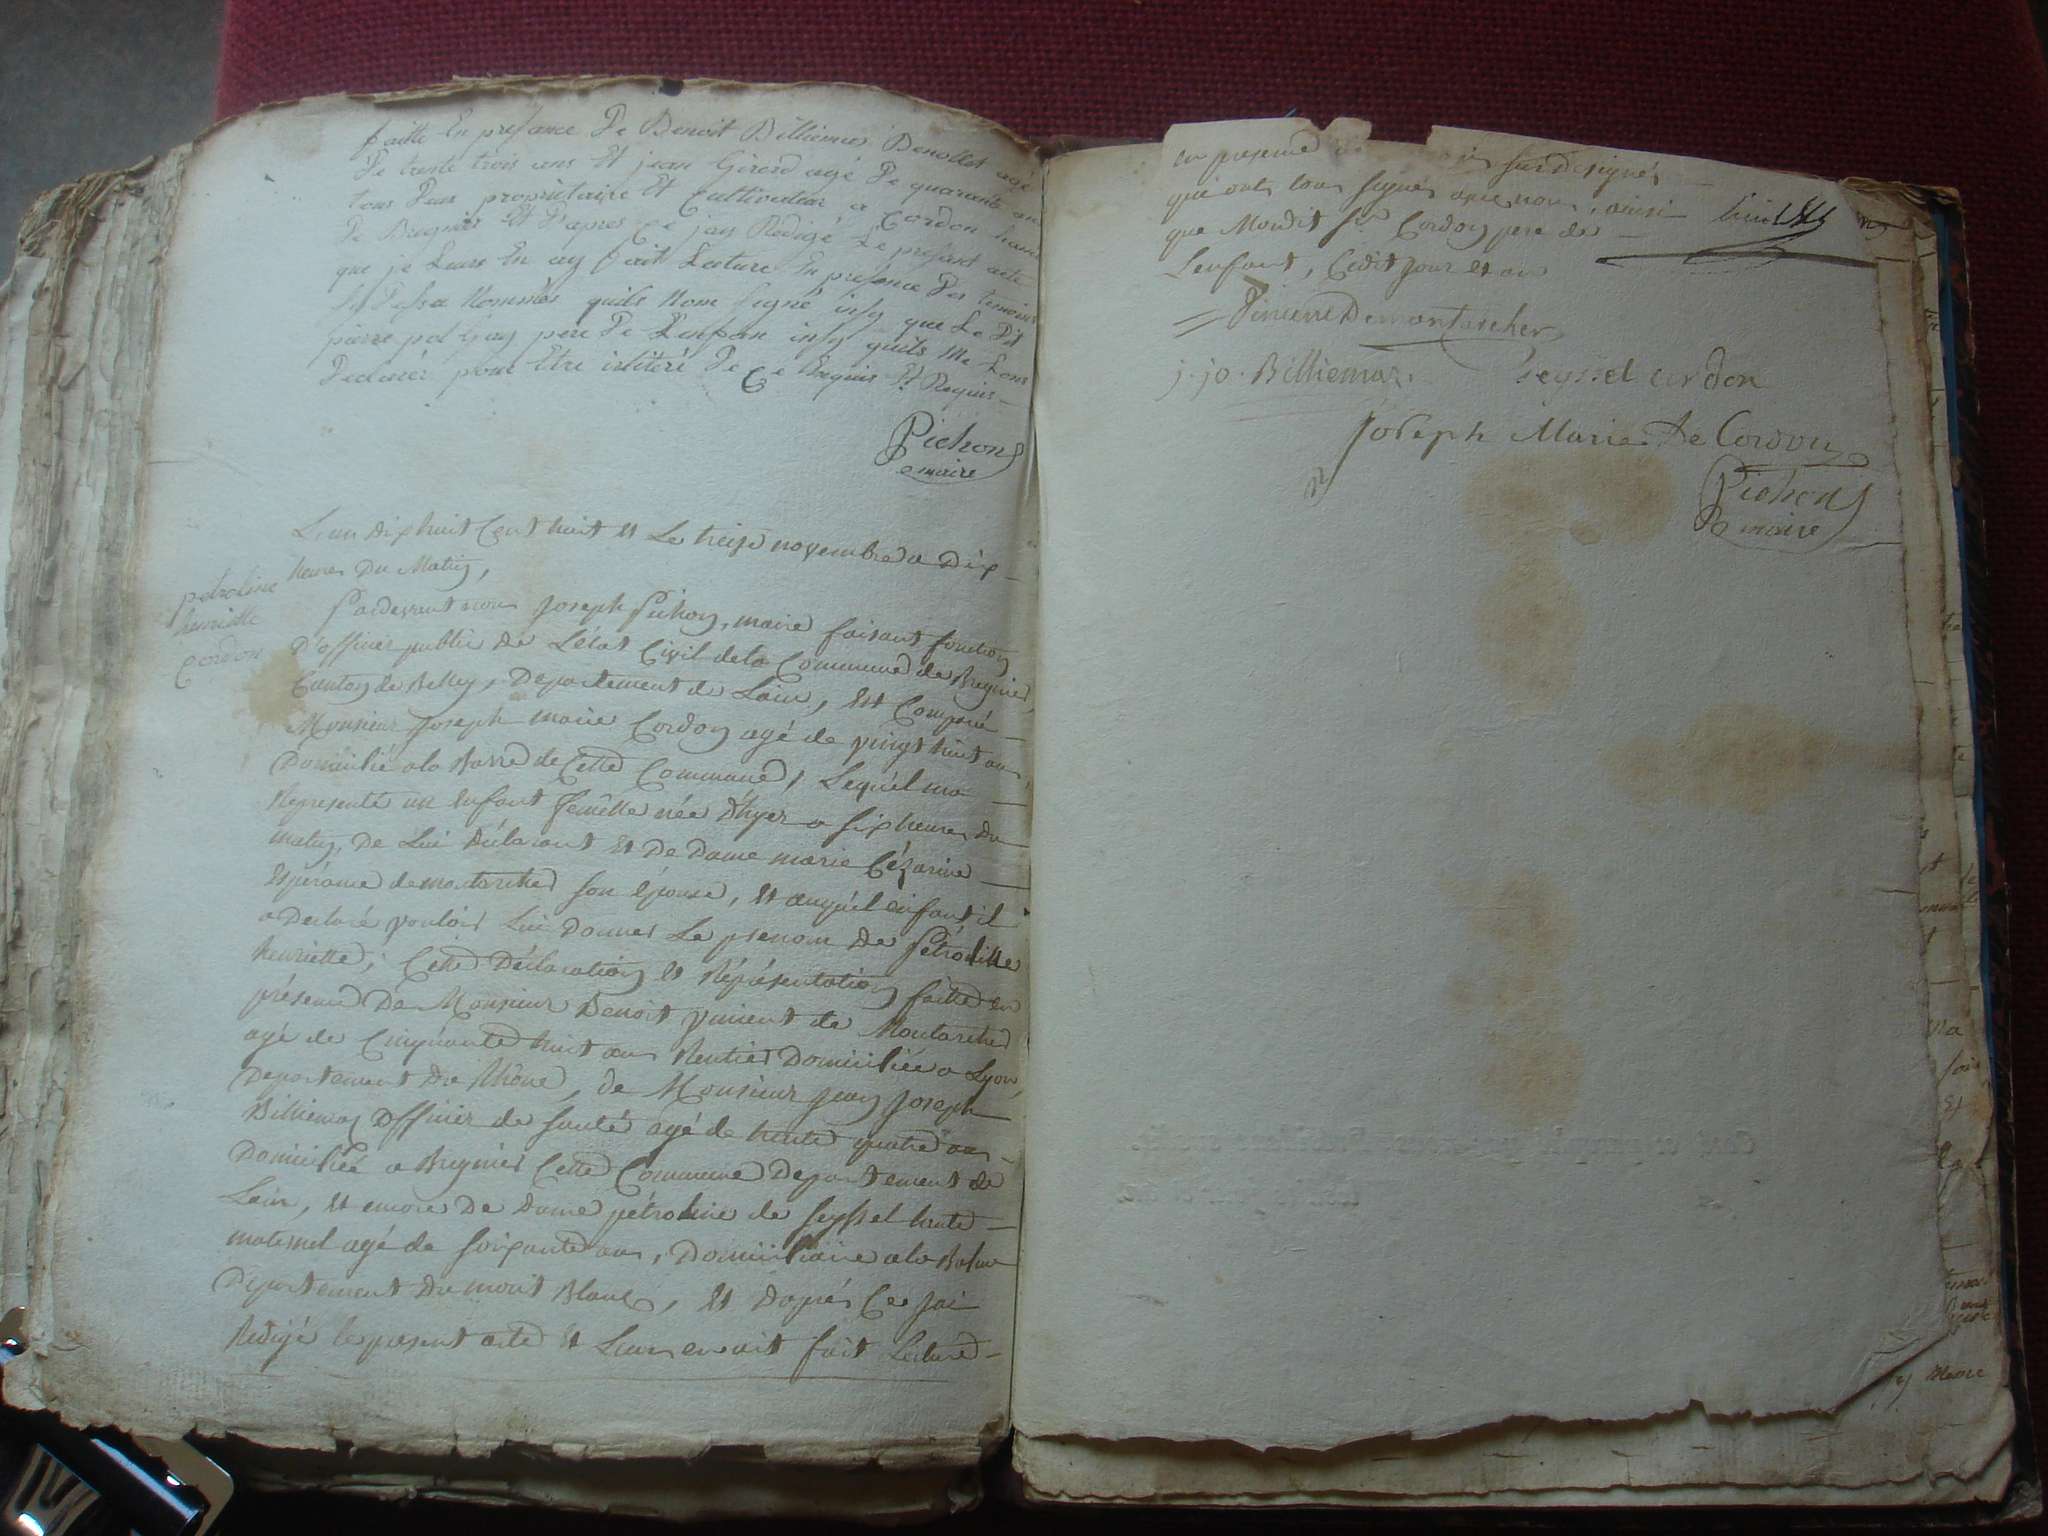 faitte En presance De Benoit Billiemas Benollet agé
De trente trois ans Et jean Girerd agé De quarante ans
tous Deux propriétaire Et Cultivateur a Cordon
De Bregnier Et D'apres Ce jais Redigé Le present acte
que je Leurs En ay fait Lecture En presence Des temoins
nommés quils Nom Signé insy que Le Dit
pierre pere De L'enfan insy quils Me Lons
Declaré pour Etre De Ce Enquis Et Requis
Pichon
maire
Lan dix huit Cent huit Et Le treize novembre a Dix
heures Du Matin,
petroline
henriette
Cordon
Pardevant nous Joseph Pichon, maire faisant fonction
D'officier public de L'état Civil de la Commune de Bregnier,
Canton de Belley, Departement de Lain, Est Comparu
Monsieur Joseph marie Cordon agé de vingt huit ans,
Domicilié a la Barre de Cette Commune, Lequel ma
Représenté un Enfant femelle née d'hyer a six heures du
matin, De Lui Déclarant Et De Dame marie Cézarine
Espérance demontarcher son épouse, Et auquel enfant il
a Declaré vouloir Lui Donner Le prenom de Pétroline
henriette; Cette Déclaration Et Réprésentation faitte en
présence De Monsieur Benoit vincent de Montarcher
agé de Cinquante huit ans Rentier Domiciliée a Lyon
Departement du Rhône, de Monsieur Jean Joseph
Billiemaz Officier de santé agé de trente quatre ans
Domiciliée a Bregnier Cette Commune Departement de
Lain, Et encore De Dame pétroline de Seyssel tante
maternel agé de soixante ans, Domiciliaire a la Balme
Departement du mont Blanc, Et Daprés Ce Jai
Redigé le present acte Et Leurs en ait fait Lecture
en presence sus Designés
qui ont tous signés avec nous, ainsi
que Mondit Sr Cordon pere de
Lenfant, Cedit Jour et an
Vincent Demontarcher
j. jo. Billiemaz. Seyssel cordon
Joseph Marie De Cordon
Pichon
maire